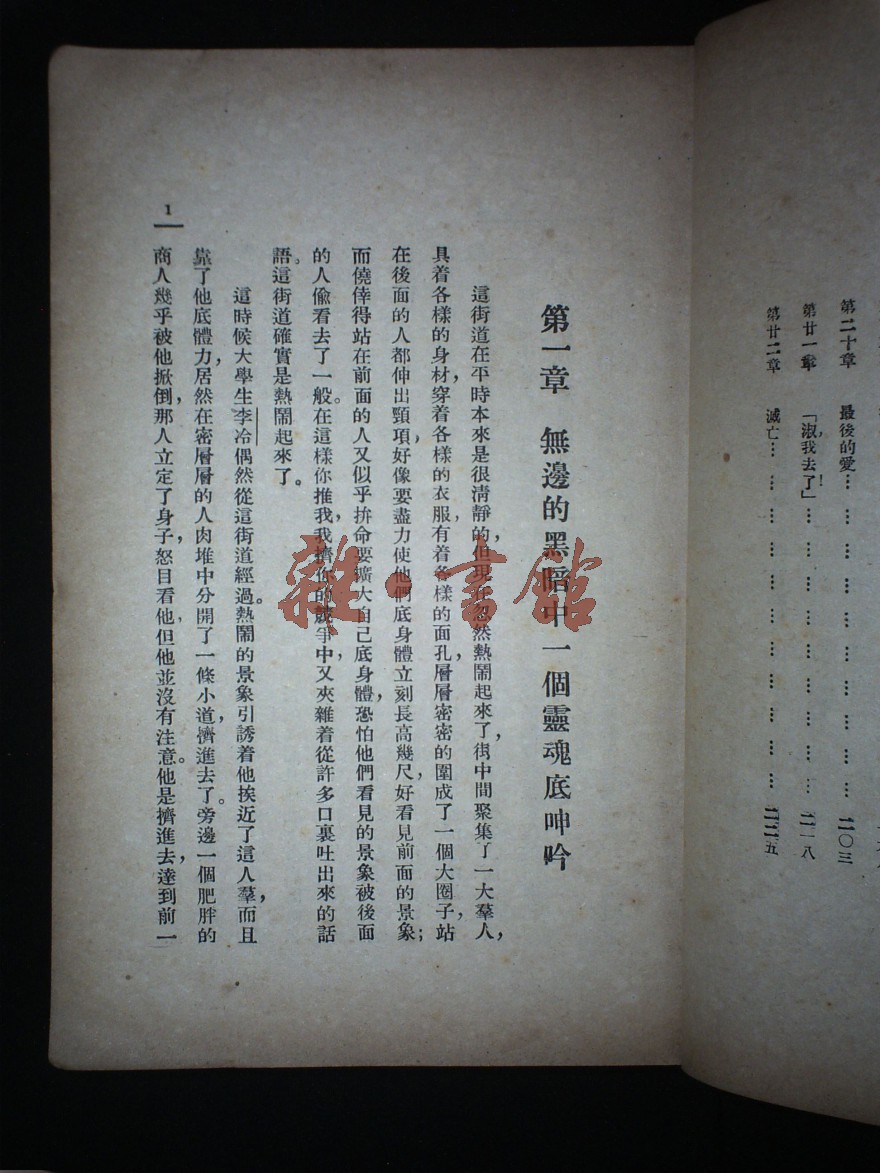 第二十章　最後的愛…………………………二〇三
第廿一章　「淑，我去了！」…………………………二一八
第廿二章　滅亡…………………………二二五
第一章　無邊的黑暗中一個靈魂底呻吟
這街道在平時本來是很清靜的，但現在忽然熱鬧起來了，街中間聚集了一大羣人，
具着各樣的身材，穿着各樣的衣服，有着各樣的面孔，層層密密的圍成了一個大圈子，站
在後面的人都伸出頸項，好像要盡力使他們底身體立刻長高幾尺，好看見前面的景象；
而僥倖得站在前面的人又似乎拚命要擴大自己底身體，恐怕他們看見的景象被後面
的人偷看去了一般。在這樣你推我，我擠你的競爭中，又夾雜着從許多口裏吐出來的話
語。這街道確實是熱鬧起來了。
這時候大學生李冷偶然從這街道經過。熱鬧的景象引誘着他挨近了這人羣，而且
靠了他底體力，居然在密層層的人肉堆中分開了一條小道，擠進去了。旁邊一個肥胖的
商人幾乎被他掀倒，那人立定了身子，怒目看他，但他並沒有注意。他是擠進去，達到前一
1
雜·書館